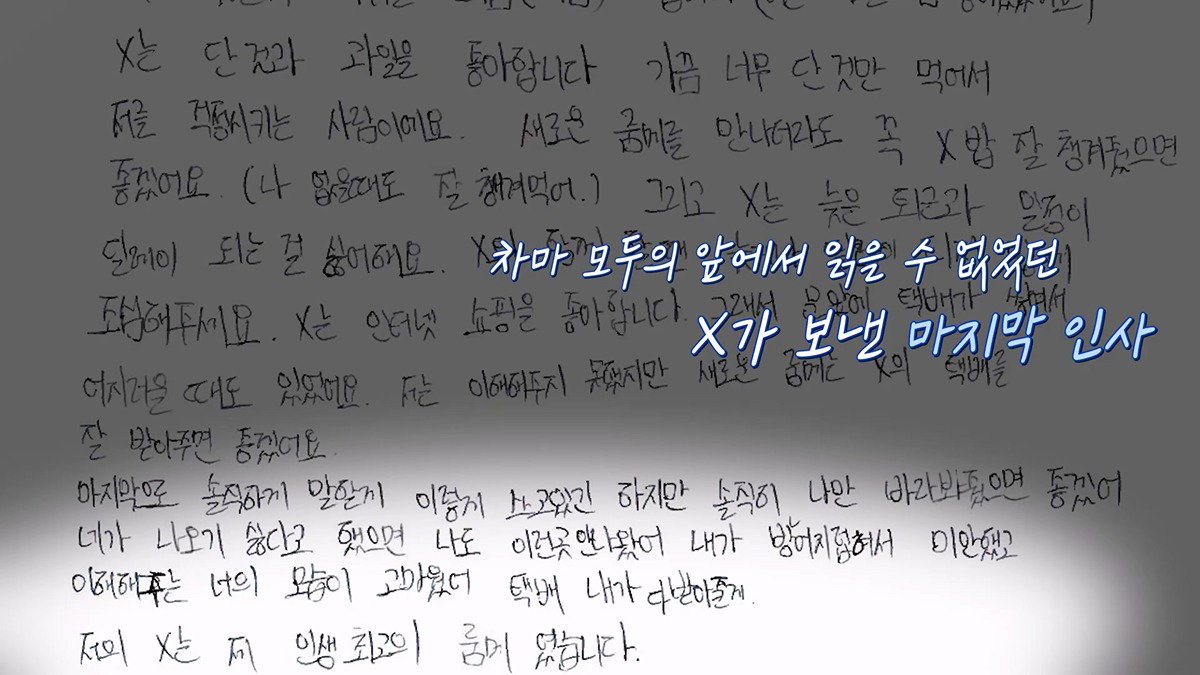 X는 단것과 과일을 좋아합니다 가끔 너무 단것만 먹어서
저를 걱정시키는 사람이에요. 새로운 룸메를 만나더라도 꼭 X밥 잘 챙겨줬으면
좋겠어요. (나 없을때도 잘 챙겨먹어.) 그리고 X는 늦은 퇴근과 일정이
딜레이 되는 걸 싫어해요.
차마 모두의 앞에서 읽을 수 없었던
조심해주세요. X는 인터넷 쇼핑을 좋아합니다. 그래서 문앞에 택배가 쌓여서
X가 보낸 마지막 인사
어지러울 때도 있었어요. 저는 이해해주지 못했지만 새로운 룸메는 X의 택배를
잘 받아주면 좋겠어요.
마지막으로 솔직하게 말할게 이렇게 쓰고있긴 하지만 솔직히 나만 바라봐줬으면 좋겠어
네가 나오기 싫다고 했으면 나도 이런곳 안나왔어 내가 방어지럽혀서 미안했고
이해해주는 너의 모습이 고마웠어 택배 내가 다받아줄게.
저의 X는 제 인생 최고의 룸메 였습니다.